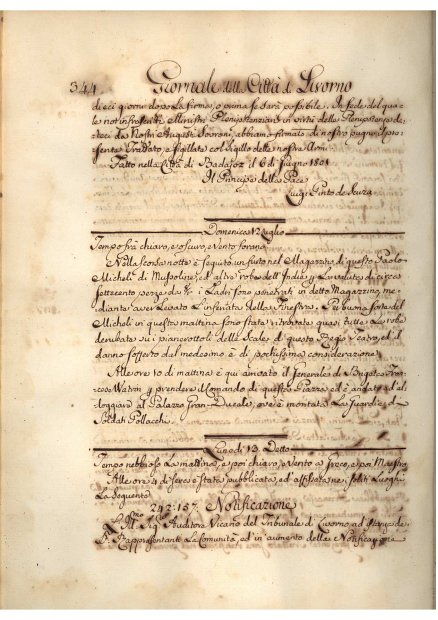 344 Giornale della Città di Livorno
dieci giorni dopo la firma, o prima se sarà possibile. In fede del qua=
le noi infrascritti Ministri Plenipotenziari in virtù della Plenipotenza de=
dei Nostri Augusti Sovrani, abbiamo firmato di nostro pugno il pre=
sente Trattato, e sigillato col sigillo delle nostre Armi
Fatto nella Città di Badajoz il 6 di Giugno 1801
Il Principe della Pace
Luigi Pinto de Souza
Domenica 12 Luglio
Tempo frà chiaro, e oscuro, e Vento forano
Nella scorsa notte è seguito un furto nel Magazzino di questo Paolo
Micheli di Mussoline, ed altre robe dell'Indie, la valuta di circa
settecento pezze da 8/r i Ladri sono penetrati in detto Magazzino me=
diante aver levato l'inferriata della Finestra. Per buona sorte del
Micheli in questa mattina sono state ritrovate quasi tutte le robe
derubate su i pianerottoli delle Scale di questo Regio Teatro, ed il
danno sofferto dal medesimo è di pochissima considerazione
Alle ore 10 di mattina è qui arrivato il Generale di
Watrin prendere il Comando di questa Piazza ed è andato ad al
loggiare al Palazzo Gran-Ducale, ove è montata la Guardia di
Soldati Pollacchi
Lunedì 13 Detto
Tempo nebbioso la mattina, e poi chiaro, e Vento a Greco, e poi Maestro
Alle ore 2 di sera è stata pubblicata ed affissa ne soliti Luoghi
La seguente
242:157 Notificazione
L'Ill.mo Sig.e Auditore Vicario del Tribunale di Livorno ad istanza de
Rappresentante le Comunità, ed in aumento della Notificazione